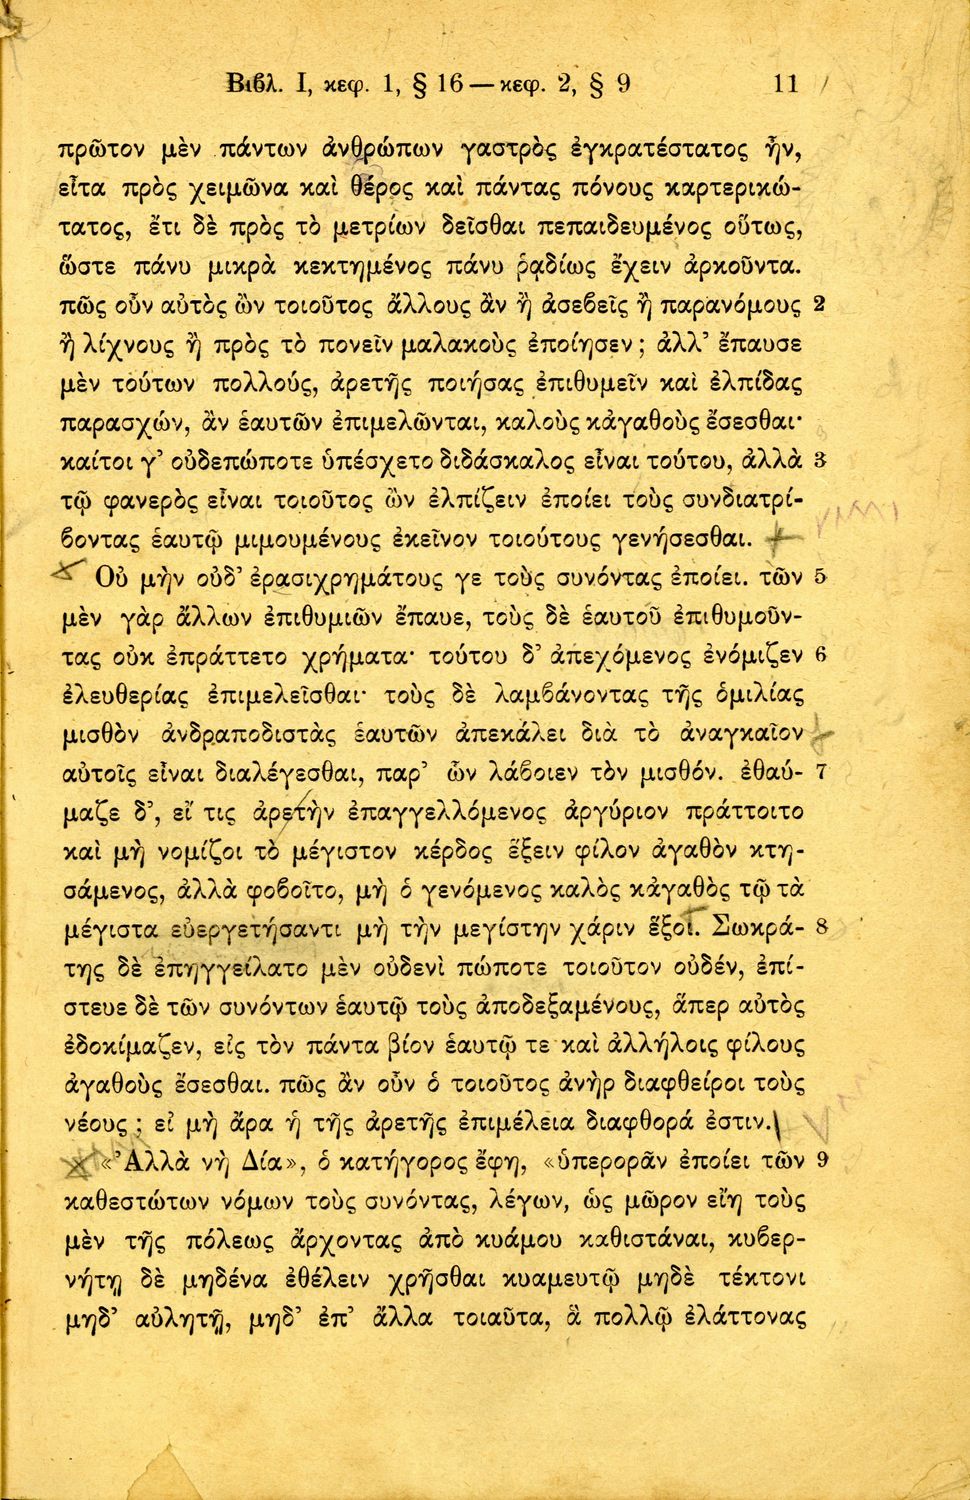 Βιβλ. Ι, κεφ. 1, § 16 — κεφ. 2, § 9 11
πρῶτον μὲν πάντων ἀνθρώπων γαστρὸς ἐγκρατέστατος ἦν,
εἶτα πρὸς χειμῶνα καὶ θέρος καὶ πάντας πόνους καρτερικώ-
τατος, ἔτι δὲ πρὸς τὸ μετρίων δεῖσθαι πεπαιδευμένος οὕτως,
ὥστε πάνυ μικρὰ κεκτημένος πάνυ ῥᾳδίως ἔχειν ἀρκοῦντα.
πῶς οὖν αὐτὸς ὢν τοιοῦτος ἄλλους ἂν ἢ ἀσεβεῖς ἢ παρανόμους 2
ἢ λίχνους ἢ πρὸς τὸ πονεῖν μαλακοὺς ἐποίησεν; ἀλλ’ ἔπαυσε
μὲν τούτων πολλούς, ἀρετῆς ποιήσας ἐπιθυμεῖν καὶ ἐλπίδας
παρασχών, ἂν ἑαυτῶν ἐπιμελῶνται, καλοὺς κἀγαθοὺς ἔσεσθαι·
καίτοι γ’ οὐδεπώποτε ὑπέσχετο διδάσκαλος εἶναι τούτου, ἀλλὰ 3
τῷ φανερὸς εἶναι τοιοῦτος ὢν ἐλπίζειν ἐποίει τοὺς συνδιατρί-
βοντας ἑαυτῷ μιμουμένους ἐκεῖνον τοιούτους γενήσεσθαι.
Οὐ μὴν οὐδ’ ἐρασιχρημάτους γε τοὺς συνόντας ἐποίει. τῶν 5
μὲν γὰρ ἄλλων ἐπιθυμιῶν ἔπαυε, τοὺς δὲ ἑαυτοῦ ἐπιθυμοῦν-
τας οὐκ ἐπράττετο χρήματα· τούτου δ’ ἀπεχόμενος ἐνόμιζεν 6
ἐλευθερίας ἐπιμελεῖσθαι· τοὺς δὲ λαμβάνοντας τῆς ὁμιλίας
μισθὸν ἀνδραποδιστὰς ἑαυτῶν ἀπεκάλει διὰ τὸ ἀναγκαῖον
αὐτοῖς εἶναι διαλέγεσθαι, παρ’ ὧν λάβοιεν τὸν μισθόν. ἐθαύ- 7
μαζε δ’, εἴ τις ἀρετὴν ἐπαγγελλόμενος ἀργύριον πράττοιτο
καὶ μὴ νομίζοι τὸ μέγιστον κέρδος ἕξειν φίλον ἀγαθὸν κτη-
σάμενος, ἀλλὰ φοβοῖτο, μὴ ὁ γενόμενος καλὸς κἀγαθὸς τῷ τὰ
μέγιστα εὐεργετήσαντι μὴ τὴν μεγίστην χάριν ἕξοι. Σωκρά- 8
της δὲ ἐπηγγείλατο μὲν οὐδενὶ πώποτε τοιοῦτον οὐδέν, ἐπί-
στευε δὲ τῶν συνόντων ἑαυτῷ τοὺς ἀποδεξαμένους, ἅπερ αὐτὸς
ἐδοκίμαζεν, εἰς τὸν πάντα βίον ἑαυτῷ τε καὶ ἀλλήλοις φίλους
ἀγαθοὺς ἔσεσθαι. πῶς ἂν οὖν ὁ τοιοῦτος ἀνὴρ διαφθείροι τοὺς
νέους; εἰ μὴ ἄρα ἡ τῆς ἀρετῆς ἐπιμέλεια διαφθορά ἐστιν.
«Ἀλλὰ νὴ Δία», ὁ κατήγορος ἔφη, «ὑπερορᾶν ἐποίει τῶν 9
καθεστώτων νόμων τοὺς συνόντας, λέγων, ὡς μῶρον εἴη τοὺς
μὲν τῆς πόλεως ἄρχοντας ἀπὸ κυάμου καθιστάναι, κυβερ-
νήτῃ δὲ μηδένα ἐθέλειν χρῆσθαι κυαμευτῷ μηδὲ τέκτονι
μηδ’ αὐλητῇ, μηδ’ ἐπ’ ἄλλα τοιαῦτα, ἃ πολλῷ ἐλάττονας